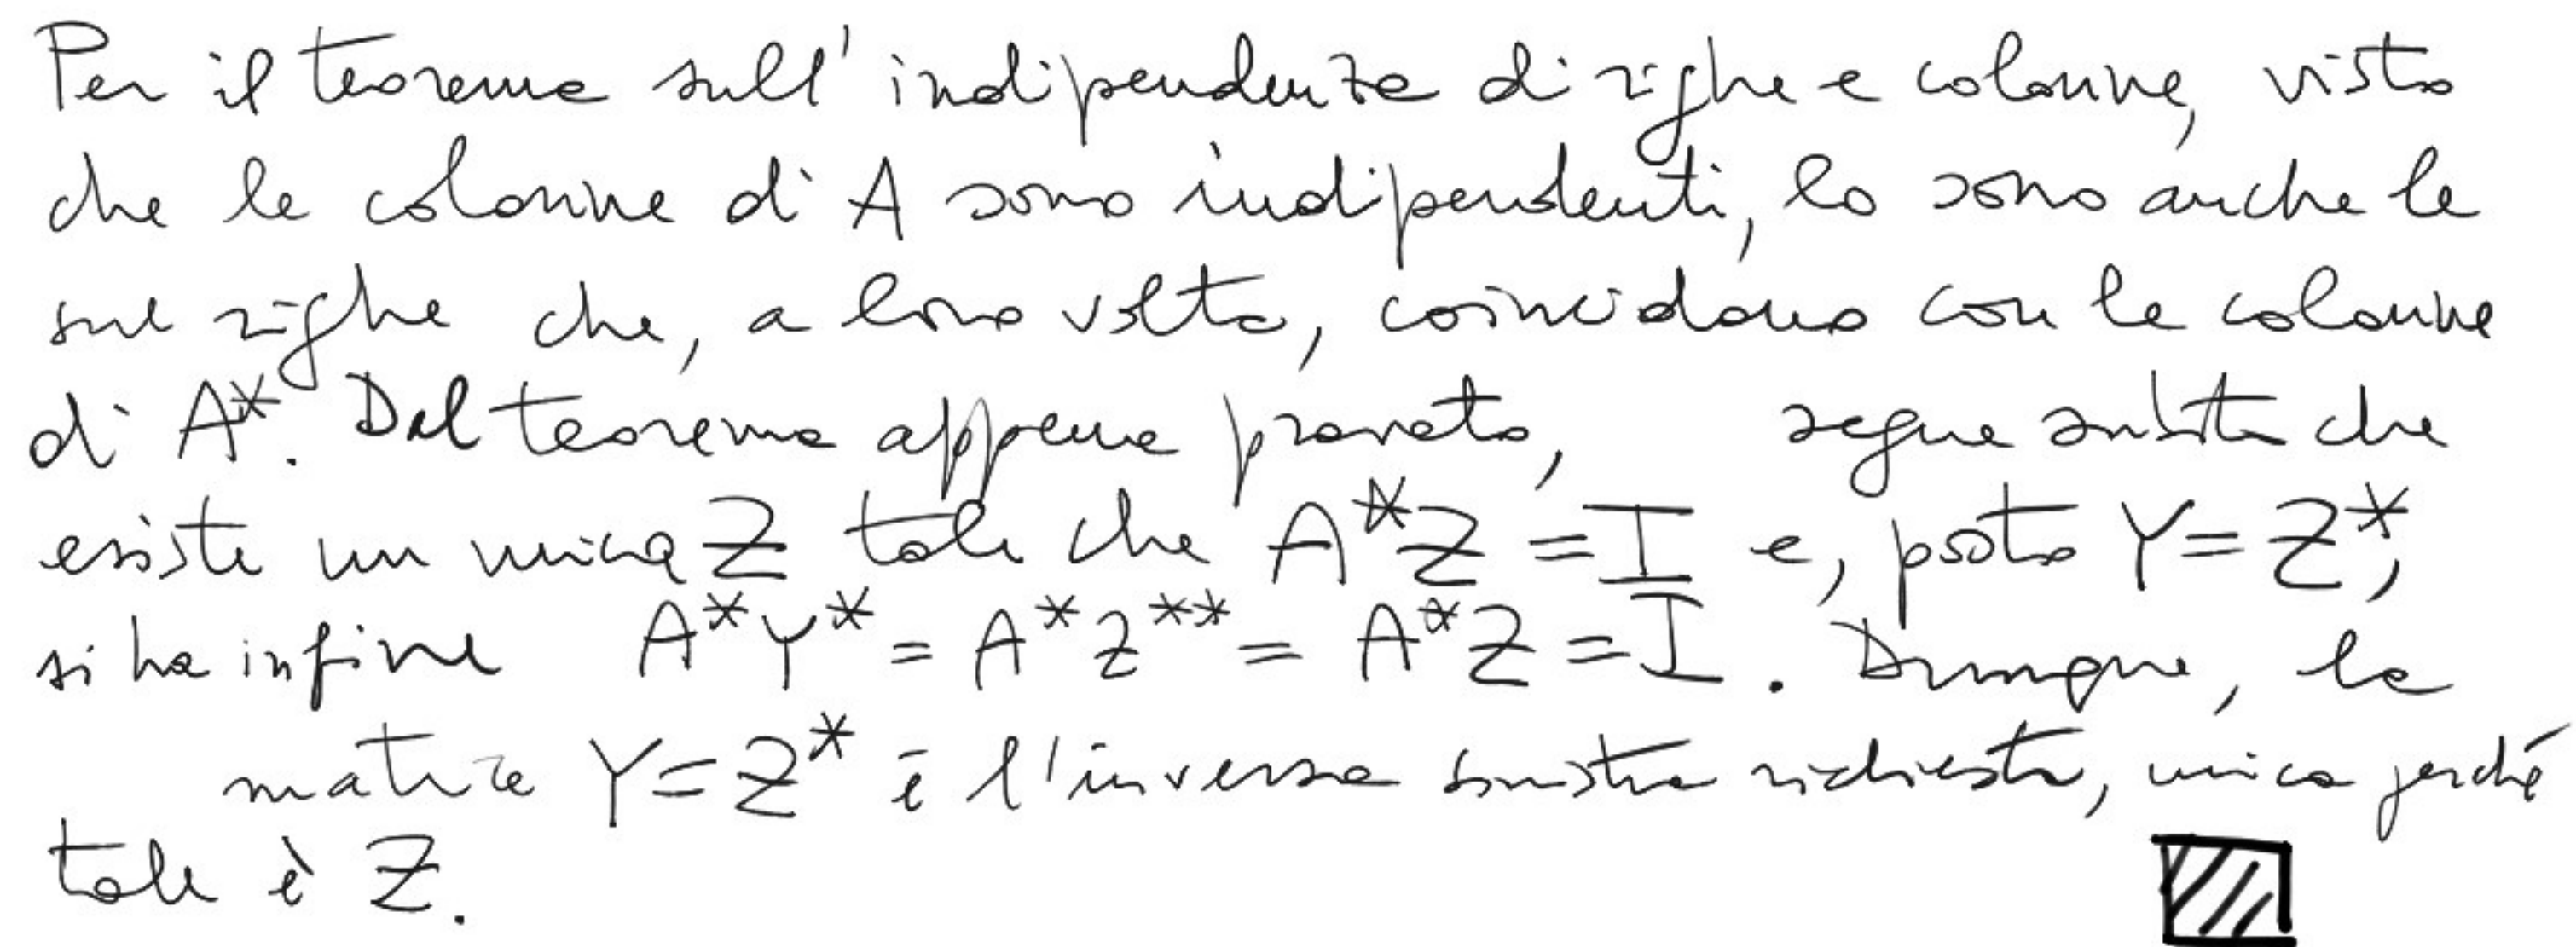 Per il teorema sull'indipendenza di righe e colonne, visto
che le colonne di A sono indipendenti, lo sono anche le
sue righe che, a loro volta, coincidono con le colonne
di A*. Dal teorema appena provato, segue subito che
esiste un unica Z tale che A*Z = I e, posto Y = Z*,
si ha infine A*Y* = A*Z** = A*Z = I. Dunque, la
matrice Y = Z* è l'inversa sinistra richiesta, unica perché
tale è Z.